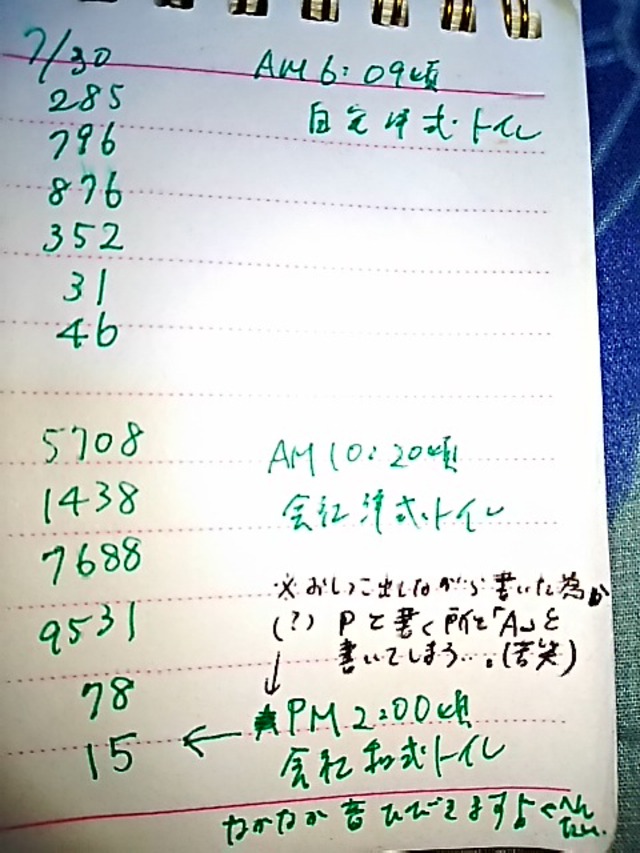 7/30 AM6:09頃
285 自宅洋式トイレ
796
876
352
31
46
5708 AM10:20頃
1438 会社洋式トイレ
7688
9531
※おしっこ出しながら書いた為か
(?) Pと書く所を「A」と
書いてしまう…。(苦笑)
78 ↓
15 ← PM2:00頃
会社和式トイレ
なかなか音ひびきますよ←へん
たい.